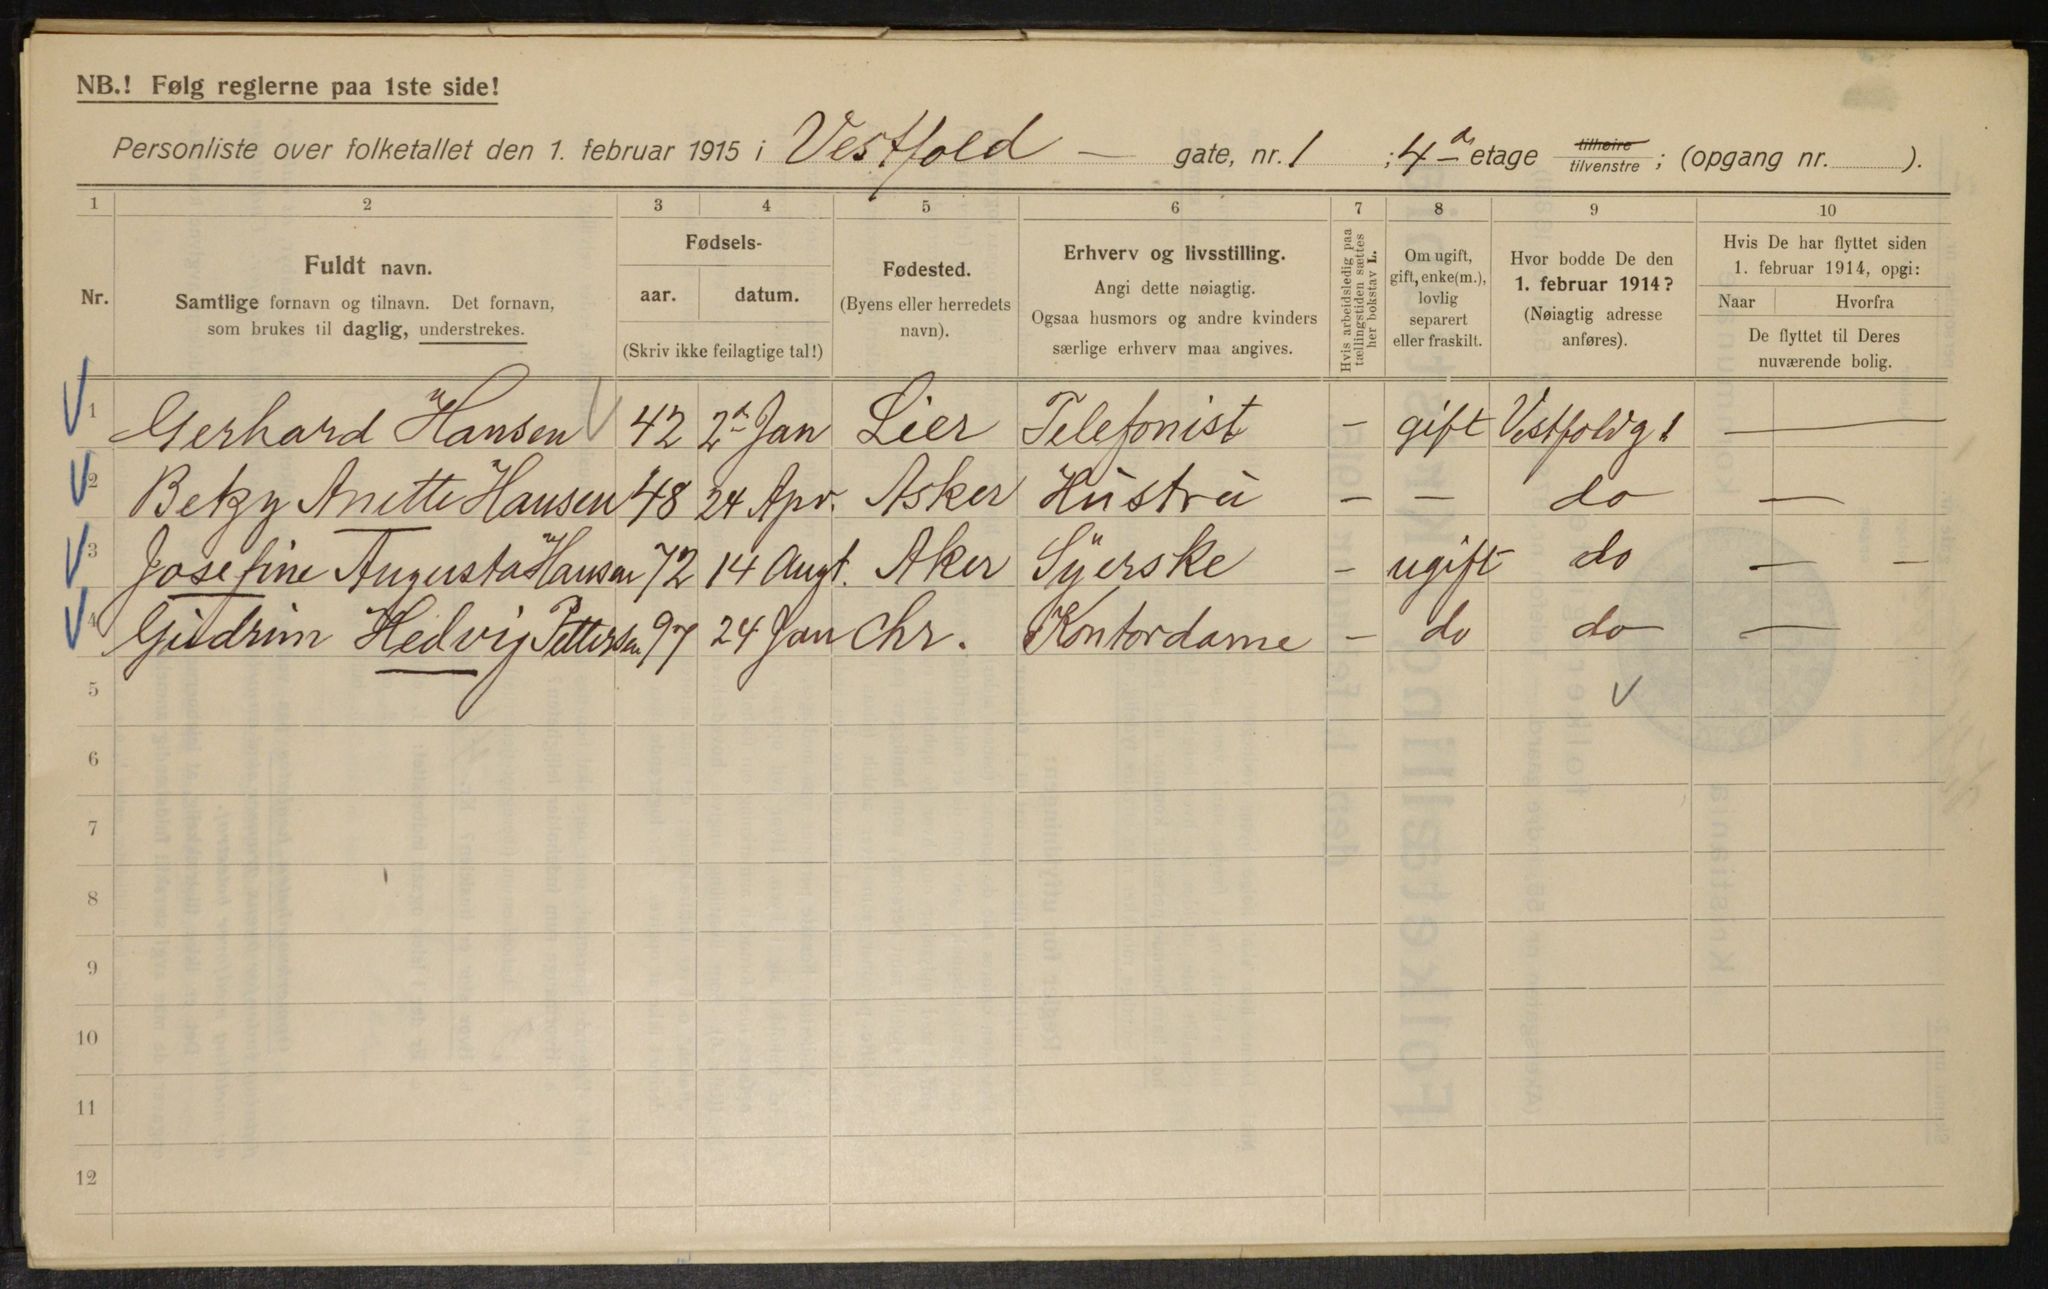 NB.! Følg reglerne paa 1ste side!
Personliste over folketallet den 1. februar 1915 i Vestfold — gate, nr. 1 ; 4de etage tilhøire tilvenstre ; (opgang nr. ).
1 2 3 4 5 6 7 8 9 10
Nr.
Fuldt navn.
Samtlige fornavn og tilnavn. Det fornavn,
som brukes til daglig, understrekes.
Fødsels-
aar. datum.
(Skriv ikke feilagtige tal!)
Fødested.
(Byens eller herredets
navn).
Erhverv og livsstilling.
Angi dette nøiagtig.
Ogsaa husmors og andre kvinders
særlige erhverv maa angives.
Hvis arbeidsledig paa
tællingstiden sættes
her bokstav L.
Om ugift,
gift, enke(m.),
lovlig
separert
eller fraskilt.
Hvor bodde De den
1. februar 1914?
(Nøiagtig adresse
anføres).
Hvis De har flyttet siden
1. februar 1914, opgi:
Naar Hvorfra
De flyttet til Deres
nuværende bolig.
1 Gerhard Hansen 42 2d Jan Lier Telefonist - gift Vestfoldg 1 —
2 Betzy Anette Hansen 48 24 Apr. Asker Hustru - - do —
3 Josefine Augusta Hansen 72 14 Augt. Aker Syerske - ugift do — -
4 Gudrun Hedvig Pettersen 97 24 Jan Chr. Kontordame - do do —
5
6
7
8
9
10
11
12